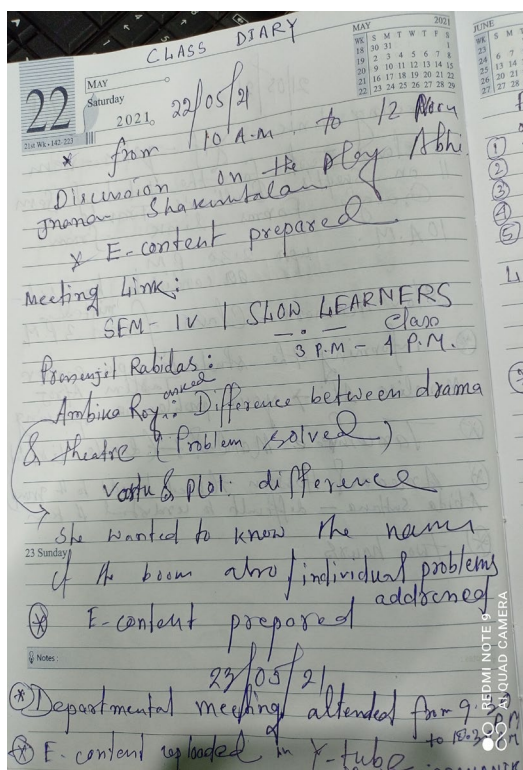 CLASS DIARY
MAY 2021
WK S M T W T F S
18 30 31 1
19 2 3 4 5 6 7 8
20 9 10 11 12 13 14 15
21 16 17 18 19 20 21 22
22 23 24 25 26 27 28 29
JUNE
WK S M
22
MAY
Saturday
2021.
21st Wk • 142-223
22/05/21
* from 10 A.M. to 12 Noon
Discussion on the play Abhi
jnanan Shakuntalam
* E-content prepared
Meeting Link:
SEM - IV | SLOW LEARNERS
Class
3 P.M - 4 P.M.
Prasenjit Rabidas:
Ambika Roy asked: Difference between drama
& theatre (Problem solved)
Vastu & plot: difference
She wanted to know the names
of the books also / individual problems
addressed
23 Sunday
* E-content prepared
Notes:
23/05/21
* Departmental meeting attended from 9.
to 10.3
* E-content uploaded in Y-tube
1
2
3
4
5
REDMI NOTE 9
AI QUAD CAMERA